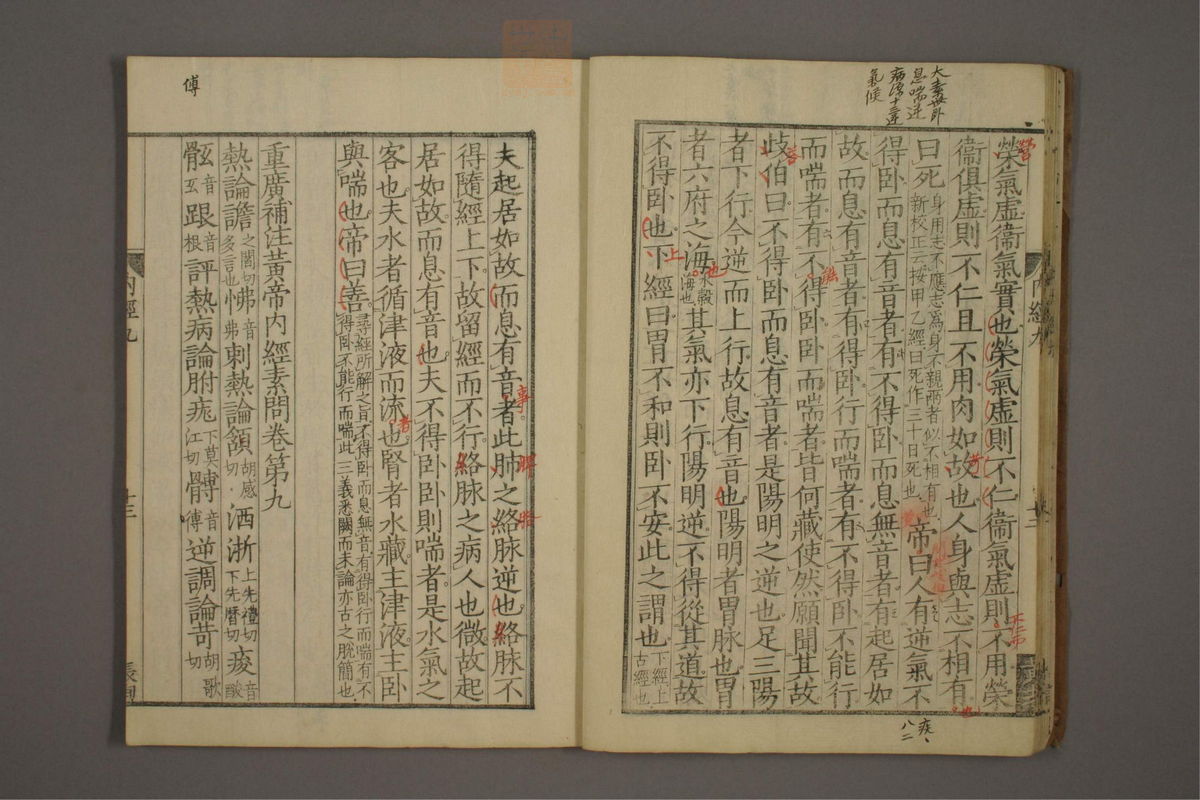 大素卅卧
息喘逆
病源十三逆
氣候
榮氣虛衞氣實也榮氣虛則不仁衞氣虛則不用榮
衞俱虛則不仁且不用肉如故也人身與志不相有
曰死身用志不應志爲身不親兩者似不相有也新校正云按甲乙經曰死作三十日死也帝曰人有逆氣不
得卧而息有音者有不得卧而息無音者有起居如
故而息有音者有得卧行而喘者有不得卧不能行
而喘者有不得卧卧而喘者皆何藏使然願聞其故
歧伯曰不得卧而息有音者是陽明之逆也足三陽
者下行今逆而上行故息有音也陽明者胃脉也胃
者六府之海水穀海也其氣亦下行陽明逆不得從其道故
不得卧也下經曰胃不和則卧不安此之謂也下經上古經也
疾
八二
内經九
夫起居如故而息有音者此肺之絡脉逆也絡脉不
得隨經上下故留經而不行絡脉之病人也微故起
居如故而息有音也夫不得卧卧則喘者是水氣之
客也夫水者循津液而流也腎者水藏主津液主卧
與喘也帝曰善尋經所解之旨不得卧而息無音有得卧行而喘有不得卧不能行而喘此三義悉闕而未論亦古之脫簡也
重廣補注黃帝内經素問卷第九
熱論譫之閻切多言也怫音弗刺熱論頷胡感切洒淅上先禮切下先曆切痠音酸
骸音玄跟音根評熱病論胕痝下莫江切髆音傅逆調論苛胡歌切
内經九
十三
傅